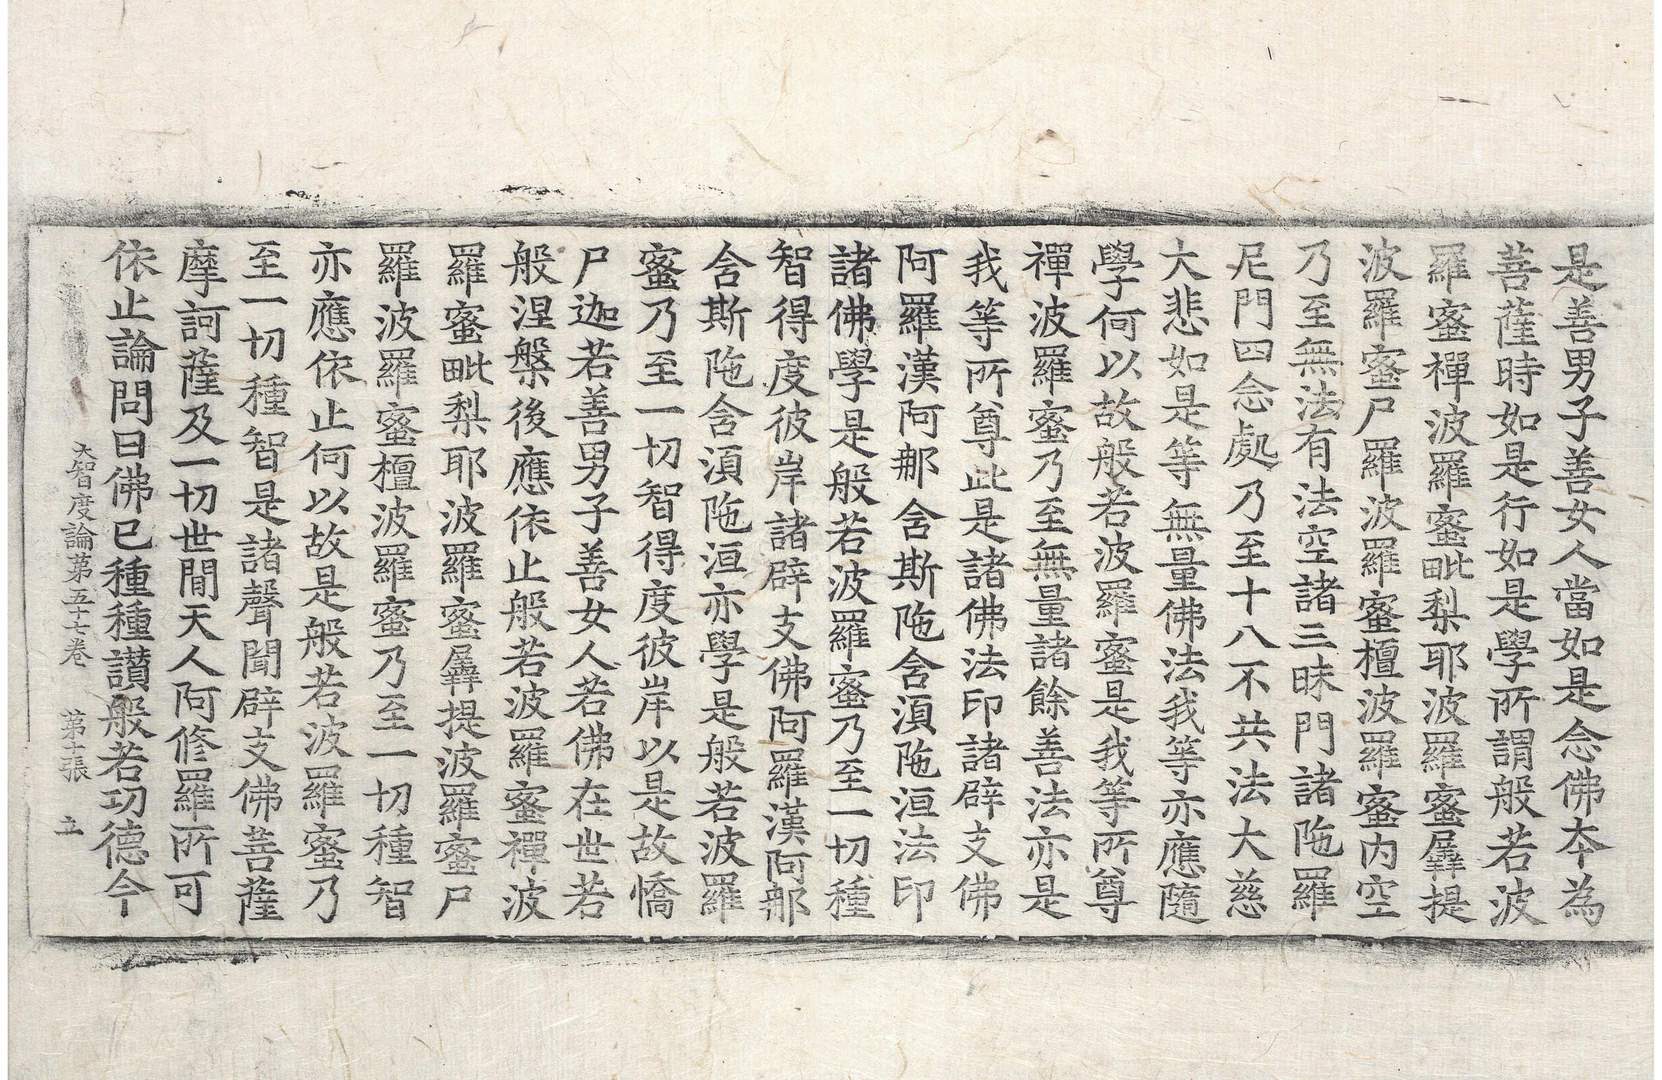 是善男子善女人當如是念佛夲為
菩薩時如是行如是學所謂般若波
羅蜜禪波羅蜜毗梨耶波羅蜜羼提
波羅蜜尸羅波羅蜜檀波羅蜜内空
乃至無法有法空諸三昧門諸陁羅
尼門四念處乃至十八不共法大慈
大悲如是等無量佛法我等亦應隨
學何以故般若波羅蜜是我等所尊
禪波羅蜜乃至無量諸餘善法亦是
我等所尊此是諸佛法印諸辟支佛
阿羅漢阿那含斯陁含湏陁洹法印
諸佛學是般若波羅蜜乃至一切種
智得度彼岸諸辟支佛阿羅漢阿那
含斯陁含湏陁洹亦學是般若波羅
蜜乃至一切智得度彼岸以是故憍
尸迦若善男子善女人若佛在世若
般涅槃後應依止般若波羅蜜禪波
羅蜜毗梨耶波羅蜜羼提波羅蜜尸
羅波羅蜜檀波羅蜜乃至一切種智
亦應依止何以故是般若波羅蜜乃
至一切種智是諸聲聞辟支佛菩薩
摩訶薩及一切世間天人阿修羅所可
依止論問曰佛已種種讃般若功德今
大智度論第五十七卷 第十張 立